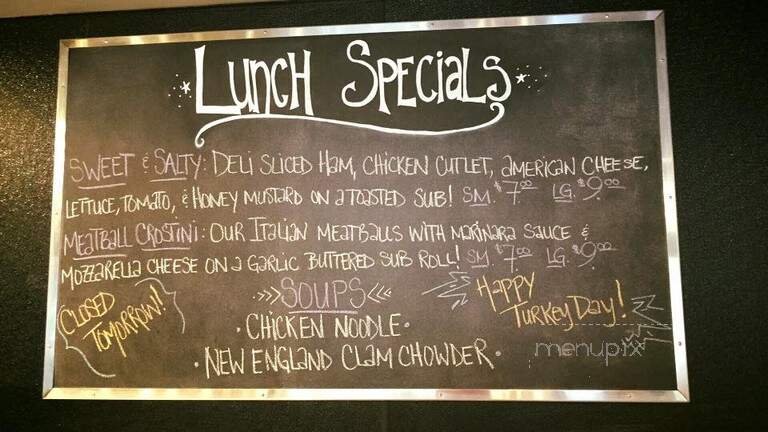 Lunch Specials
Sweet & Salty: Deli sliced Ham, Chicken Cutlet, American Cheese,
Lettuce, Tomato, & Honey Mustard on a toasted sub! Sm. $7.00 Lg. $9.00
Meatball Crostini: Our Italian Meatballs with marinara sauce &
Mozzarella cheese on a garlic buttered sub roll! Sm. $7.00 Lg. $9.00
Closed Tomorrow!!
>>> Soups <<<
• Chicken Noodle •
• New England Clam Chowder •
Happy
Turkey Day!
menupix